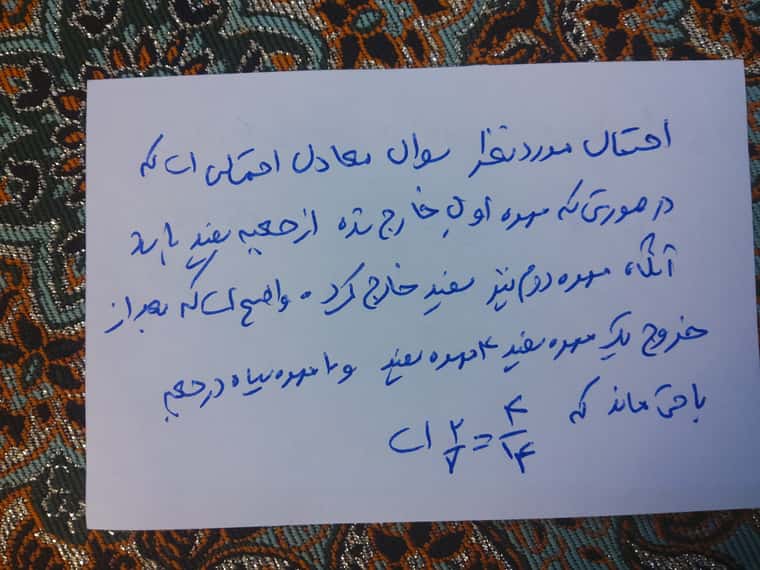 احتمال مورد نظر سوال معادل احتمالی است که
در صورتی که مهره اول خارج شده از جعبه سفید باشد
آنگاه مهره دوم نیز سفید خارج گردد. واضح است که بعد از
خروج یک مهره سفید ۴ مهره سفید و ۱۰ مهره سیاه در جعبه
باقی ماند که ۴/۱۴ = ۲/۷ است